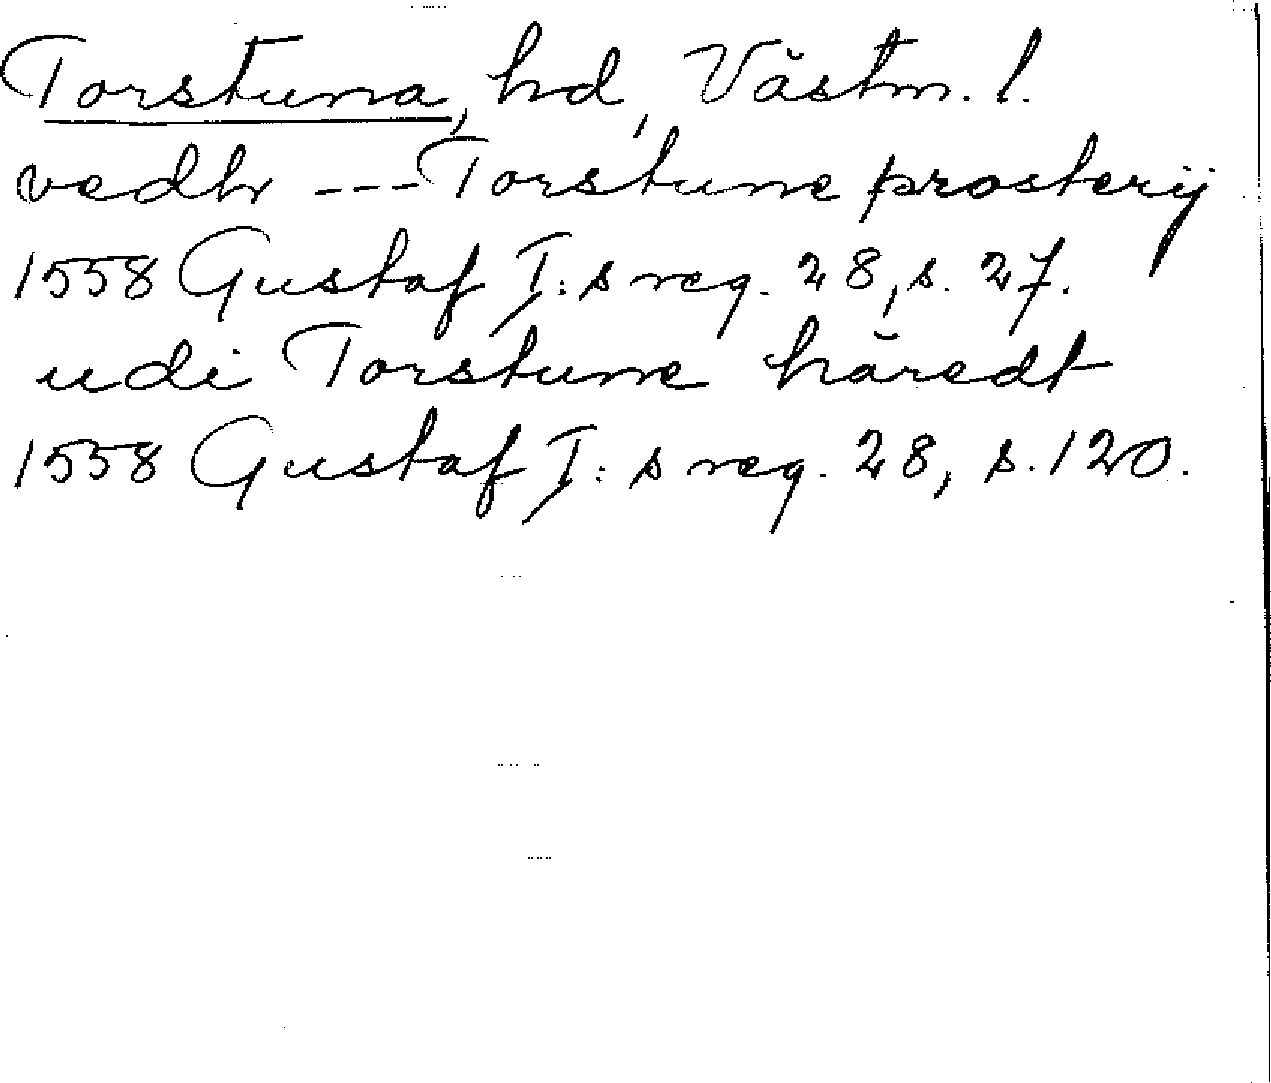 Torstuna, hd, Västm. l.
vedh --- Torstune prosterij
1558 Gustaf I:s reg. 28, s. 27.
udi Torstune häredt
1558 Gustaf I:s reg. 28, s. 120.